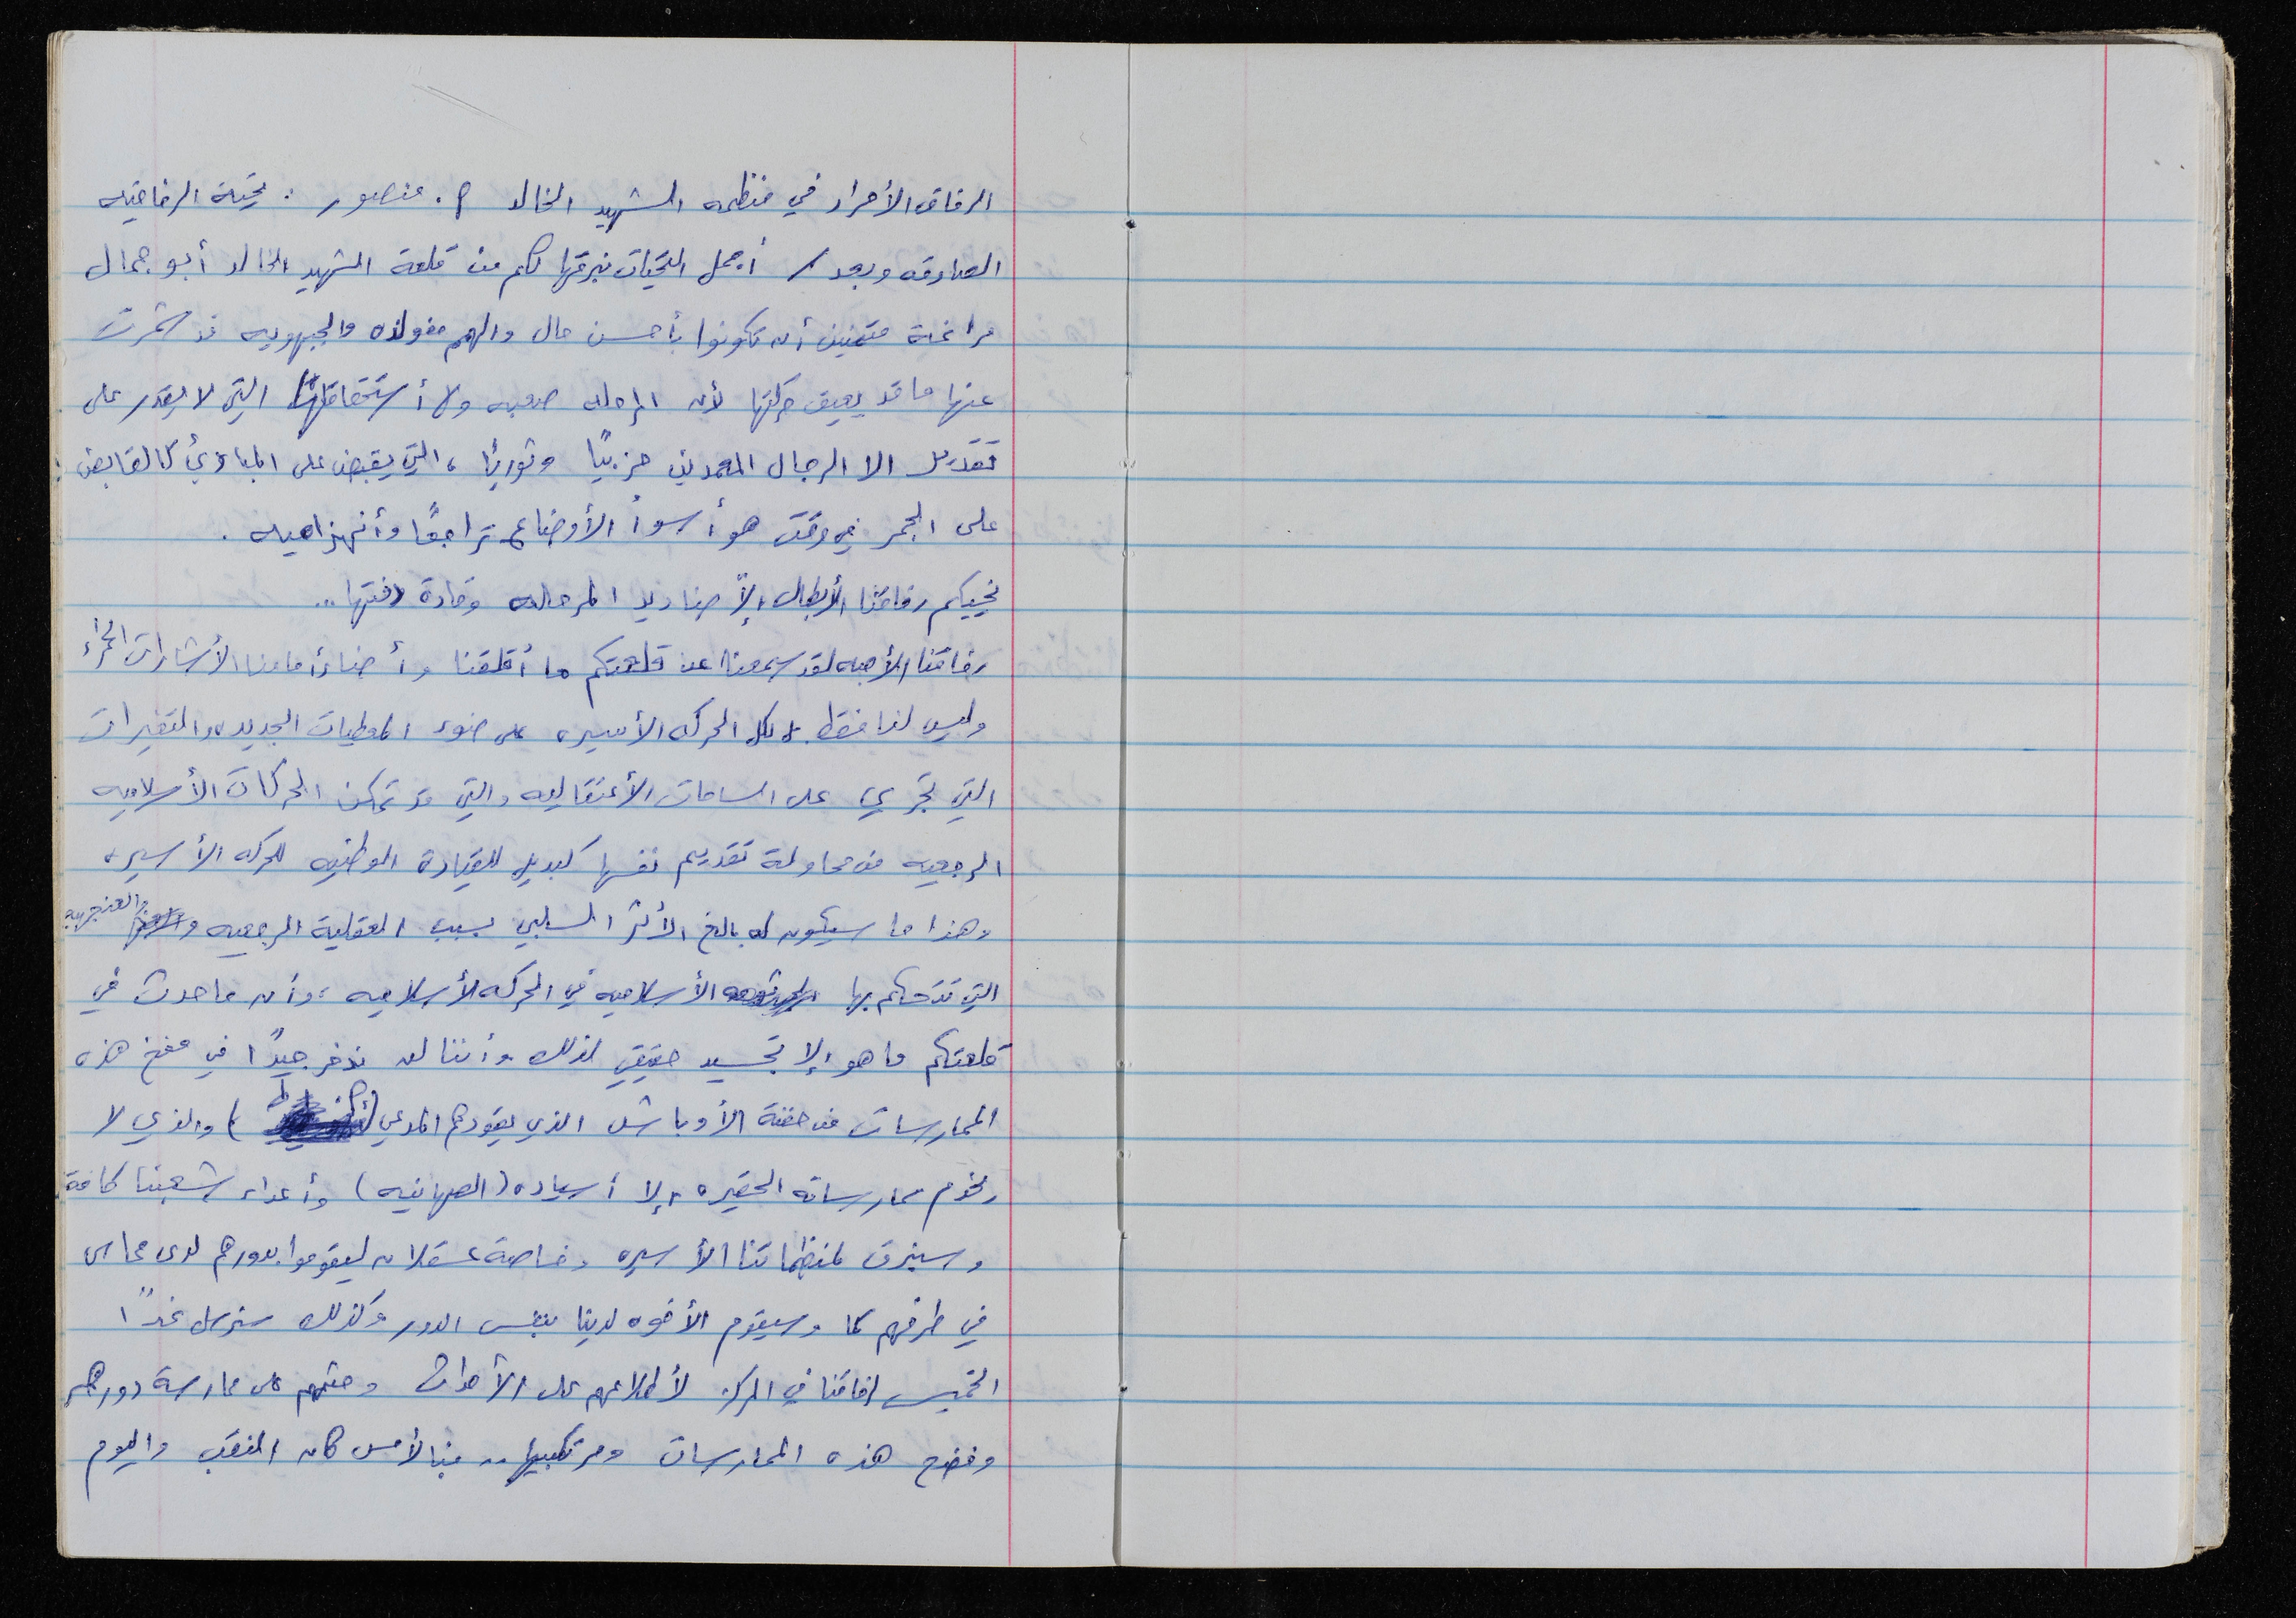 الرفاق الأحرار في منظمه الشهيد الخالد م. منصور : تحية الرفاقيه
الصادقه وبعد / أجمل التحيات نبرقها لكم من قلعة الشهيد الخالد أبو جمال
مراغة متمنين أن تكونوا بأحسن حال والهمم فولاذه والجبهويه قد شمرت
عنها ما قد يعيق حركتها لأن المرحله صعبه ولها أستحقاقاتها التي لا يقدر على
تقديمها الا الرجال المعمدين حزبيًا وثوريًا ، التي يقبض على المبادئ كالقابض
على الجمر في وقت هو أسوأ الأوضاع تراجعًا وأنهزاميه .
نحييكم رفاقنا الأبطال صناديد المرحله وقادة دفتها ..
رفاقنا الأحبه لقد سمعنا عن قلعتكم ما أقلقنا وأضاء أمامنا الأشارات الحمراء
وليس لنا فقط بل لكل الحركه الأسيره على ضوء المعطيات الجديده والتغيرات
التي تجري على الساحات الأعتقاليه والتي قد تمكن الحركات الأسلاميه
الرجعيه من محاولة تقديم نفسها كبديل للقيادة الوطنيه للحركه الأسيره
وهذا ما سيكون له بالغ الأثر السلبي بسبب العقلية الرجعيه والعنجهيه
التي تتحكم بها الأسلاميه في الحركه الأسلاميه ، وأن ما حدث في
قلعتكم ما هو إلا تجسيد حقيقي لذلك وأننا لن ندخر جهدًا في فضح هذه
الممارسات من حفنة الأوباش الذي يقودهم المدعي ( ) والذي لا
تخدم ممارساته الحقيره إلا أسياده (الصهاينه) وأعداء شعبنا كافة
وسنبرق لمنظماتنا الأسيره وخاصة عسقلان ليقوموا بدورهم لدى حماس
في طرفهم كما وسيقوم الأخوه لدينا بنفس الدور وكذلك سنرسل غدًا
الخميس لرفاقنا في المركز لأطلاعهم على الأحداث وحثهم على ممارسة دورهم
وفضح هذه الممارسات ومرتكبيها .. فبالأمس كان النقب واليوم